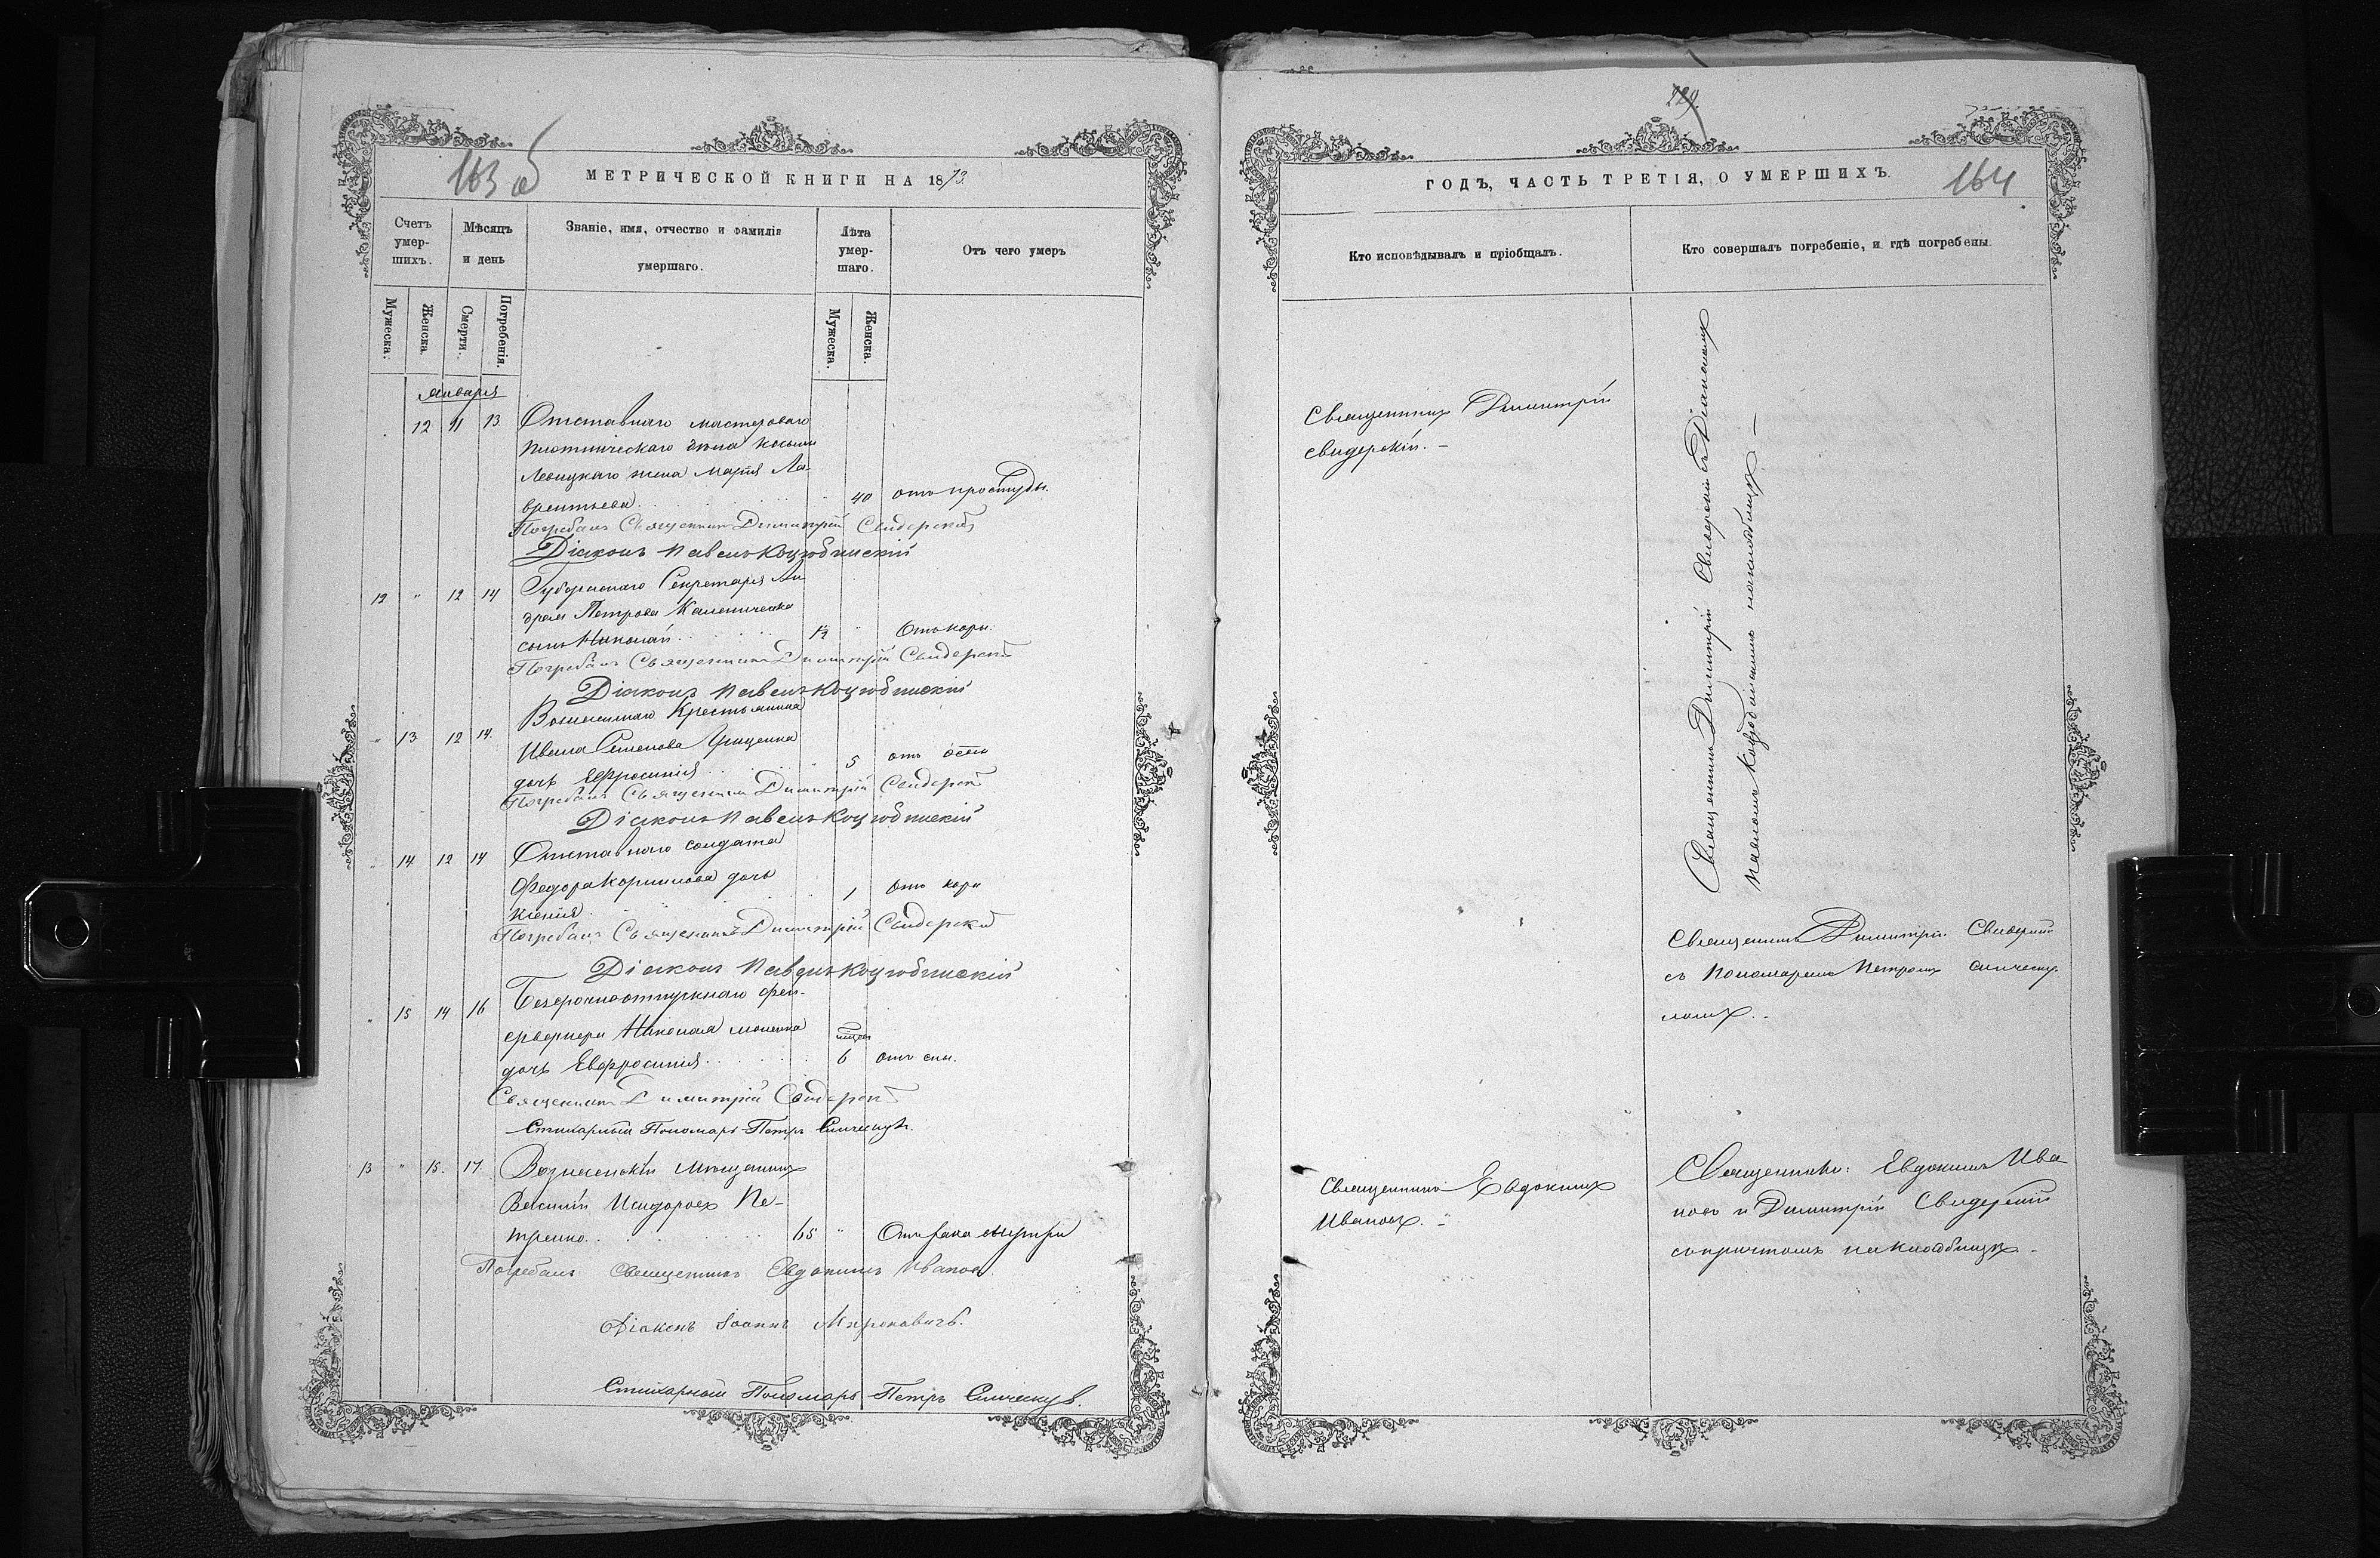 163 об
МЕТРИЧЕСКОЙ КНИГИ НА 1873.
Счетъ умер-шихъ.
Мѣсяцъ и день
Званіе, имя, отчество и фамилія умершаго.
Лѣта умер-шаго.
Отъ чего умеръ
Мужеска.
Женска.
Смерти.
Погребенія.
Мужеска.
Женска.
Января
12 11 13 Отставнаго мастероваго
Левицкаго жена Марія Ла-
врентьева 40 отъ простуды.
Погребалъ Священникъ Димитрій Свидерскій
Діаконъ Павелъ Коцюбинскій
12 " 12 14 Губернскаго Секретаря Ан-
дрея Петрова Калениченка
сынъ Николай ½ " Отъ кори.
Погребалъ Священникъ Димитрій Свидерскій
Діаконъ Павелъ Коцюбинскій
" 13 12 14. Крестьянина
Ивана Семенова Гриценка
дочь Евфросинія 5 отъ оспы
Погребалъ Священникъ Димитрій Свидерскій
Діаконъ Павелъ Коцюбинскій
" 14 12 14 Отставнаго солдата
Федора Корнилова дочь
Ксенія 1 Отъ кори
Погребалъ Священникъ Димитрій Свидерскій
Діаконъ Павелъ Коцюбинскій
" 15 14 16 Безсрочноотпускнаго фей-
ерверкера Николая
дочь Евфросинія 6 отъ
Священникъ Димитрій Свидерскій
Стихарный Пономарь Петръ
13 " 15. 17. Вознесенскій Мѣщанинъ
Василій Исидоровъ Пе-
тренко 65 " Отъ рака
Погребалъ Священникъ Евдокимъ Ивановъ
Діаконъ Іоаннъ Мироновичъ.
Стихарный Пономарь Петръ
229.
164
ГОДЪ, ЧАСТЬ ТРЕТІЯ, О УМЕРШИХЪ.
Кто исповѣдывалъ и пріобщалъ.
Кто совершалъ погребеніе, и гдѣ погребены.
Священникъ Димитрій
Свидерскій. -
Священникъ Димитрій Свидерскій съ Діакономъ
Павломъ Коцюбинскимъ на кладбищѣ -
Священникъ Димитрій Свидерскій
съ Пономаремъ Петромъ
Священникъ Евдокимъ
Ивановъ. -
Священники: Евдокимъ Ива-
новъ и Димитрій Свидерскій
съ причтомъ на кладбищѣ -